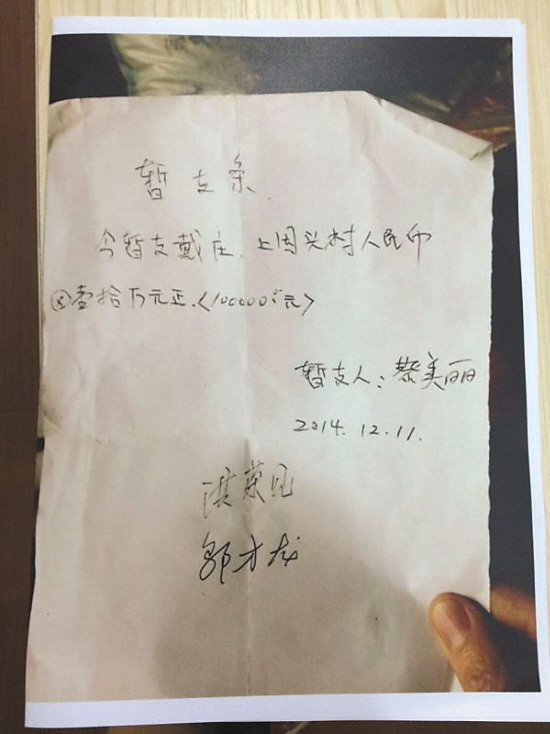 暂支条.
今暂支戴庄、上园头村人民币
ⓧ壹拾万元正.<100000元>
暂支人:蔡美丽
2014.12.11.
洪荣见
邹才龙